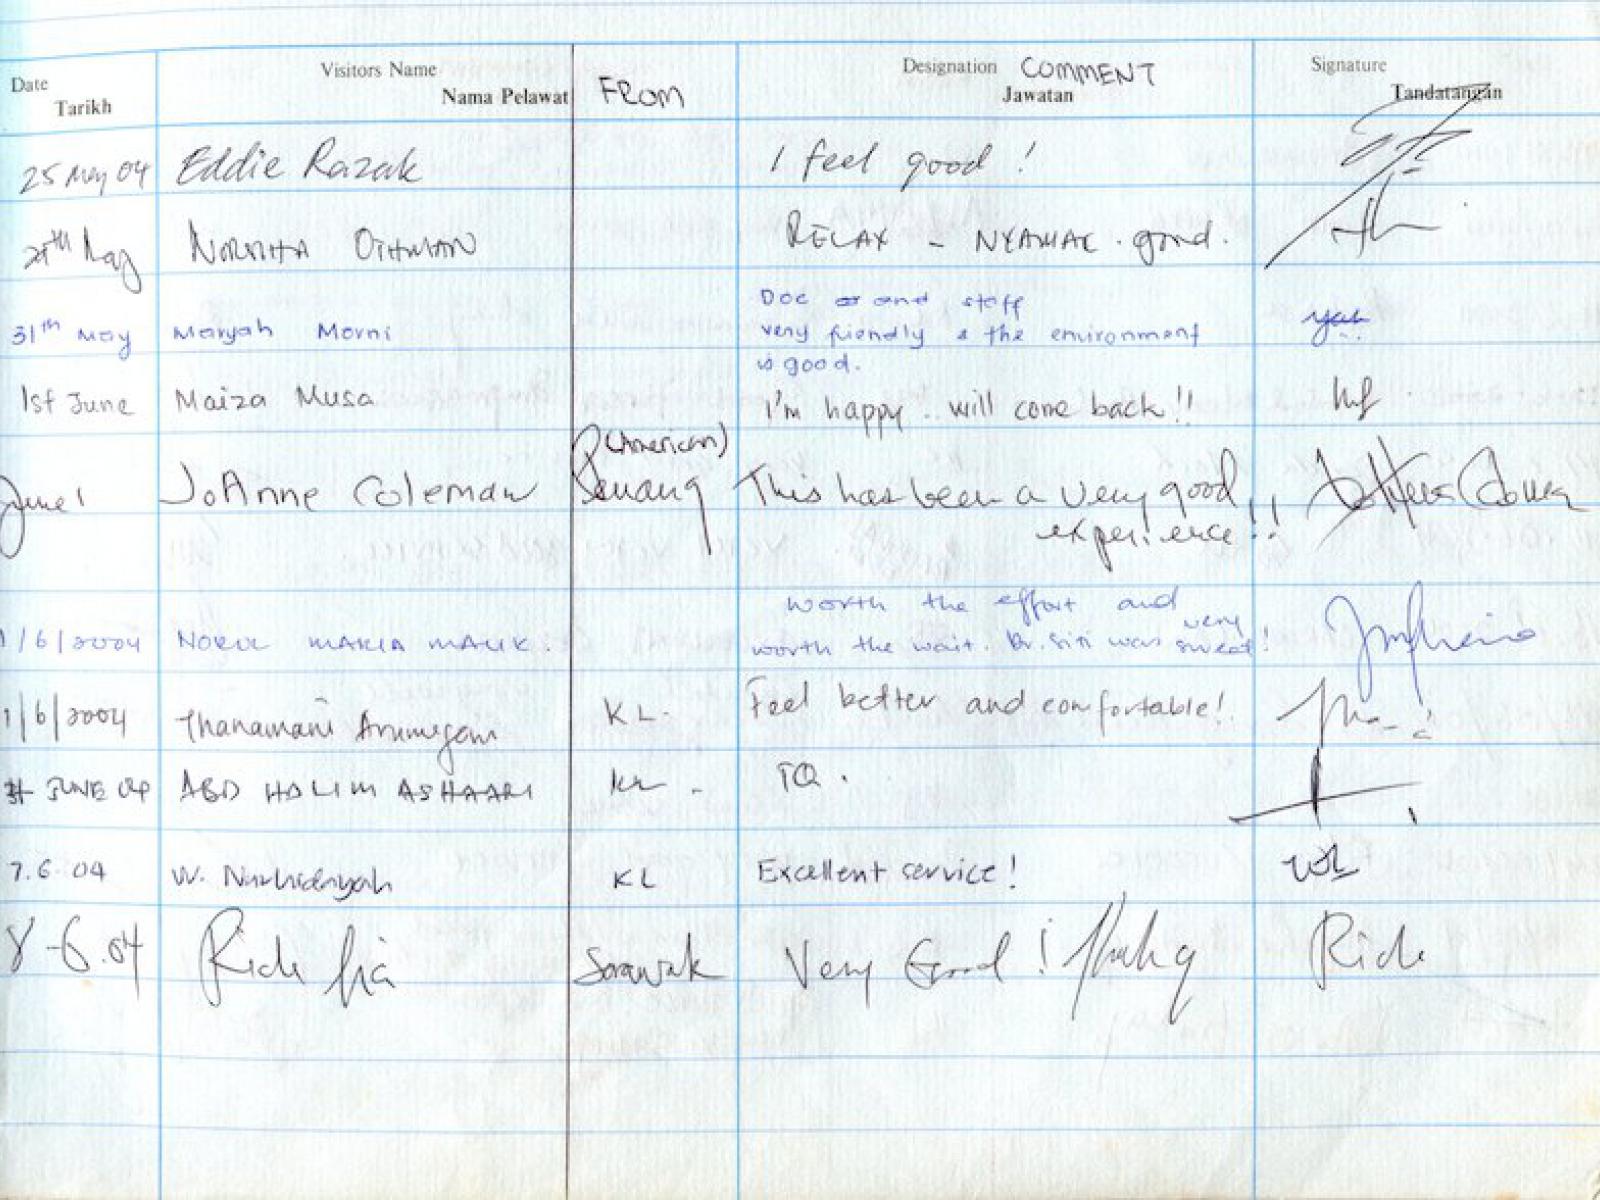 Date Visitors Name Designation COMMENT Signature
Tarikh Nama Pelawat FROM Jawatan Tandatangan
25 May 04 Eddie Razak I feel good !
May NORNITA OTHMAN RELAX - NYAMAN . good.
Doc and staff
31th May Maryah Morni very friendly & the environment
is good.
1st June Maiza Musa I'm happy .. will come back !!
(American)
June 1 JoAnne Coleman Penang This has been a very good
experience !!
worth the effort and
very
1/6/2004 NORUL MARIA MALIK . worth the wait. Dr. Siti was sweet !
1/6/2004 Thanamani Arumugam KL. Feel better and comfortable!
JUNE 04 ABD HALIM ASHAARI KL - TQ .
7.6.04 W. Nurhidayah KL Excellent service !
8-6.04 Sarawak Very Good !